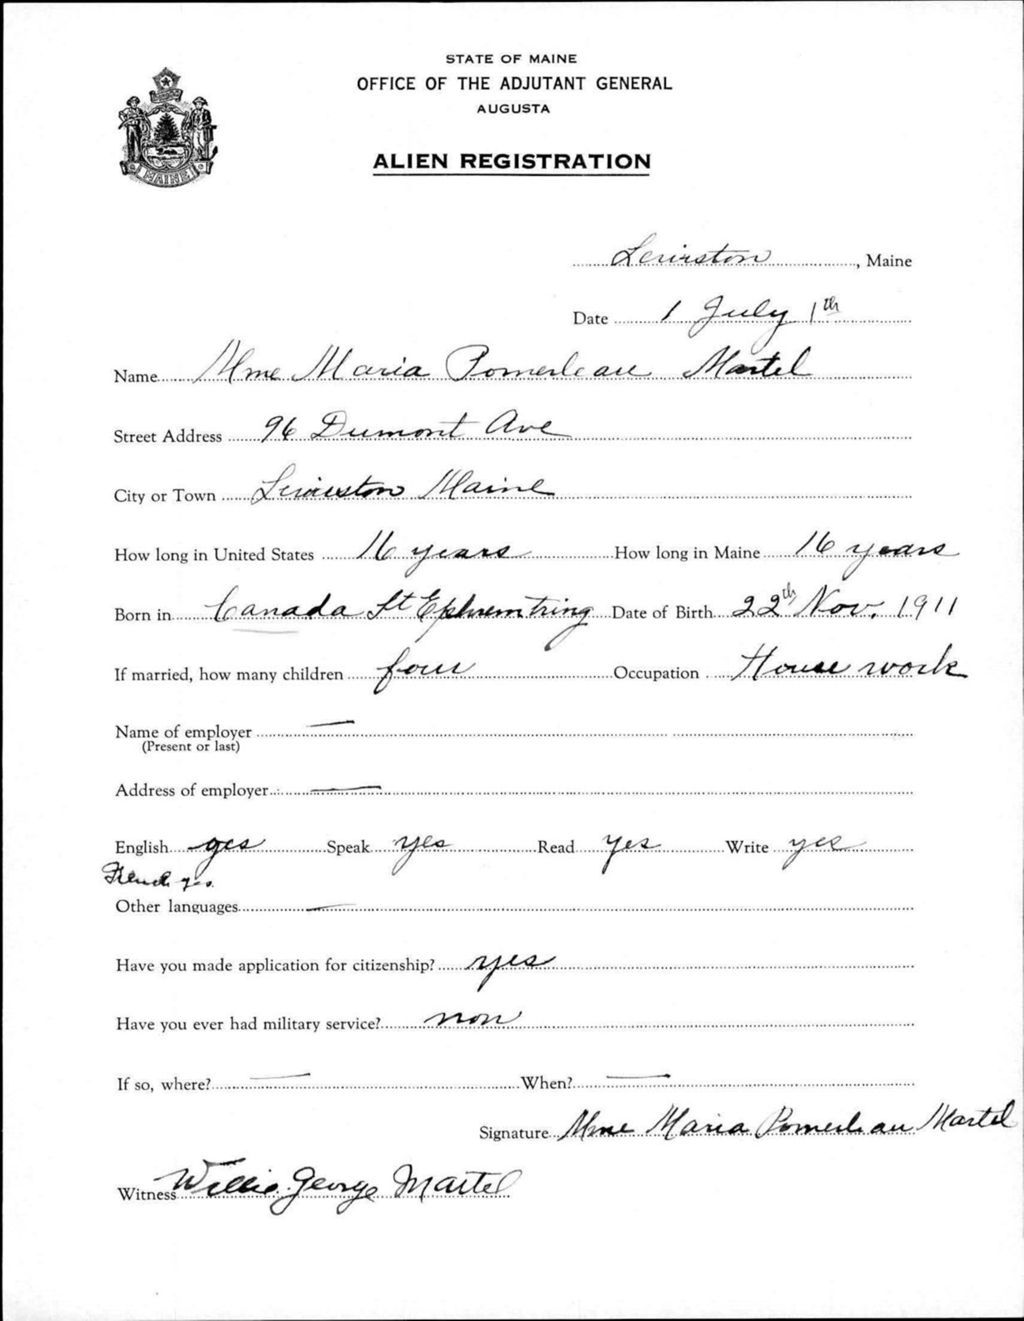 STATE OF MAINE
OFFICE OF THE ADJUTANT GENERAL
AUGUSTA
ALIEN REGISTRATION
MAINE
Lewiston, Maine
Date 1 July 1th
Name Mme Maria Pomerleau Martel
Street Address 96 Dumont Ave
City or Town Lewiston Maine
How long in United States 16 years How long in Maine 16 years
Born in Canada St Ephrem tring Date of Birth 22th Nov. 1911
If married, how many children four Occupation House work
Name of employer —
(Present or last)
Address of employer —
English yes Speak yes Read yes Write yes
French yes.
Other languages —
Have you made application for citizenship? yes
Have you ever had military service? non
If so, where? — When? —
Signature Mme Maria Pomerleau Martel
Witness Willie George Martel